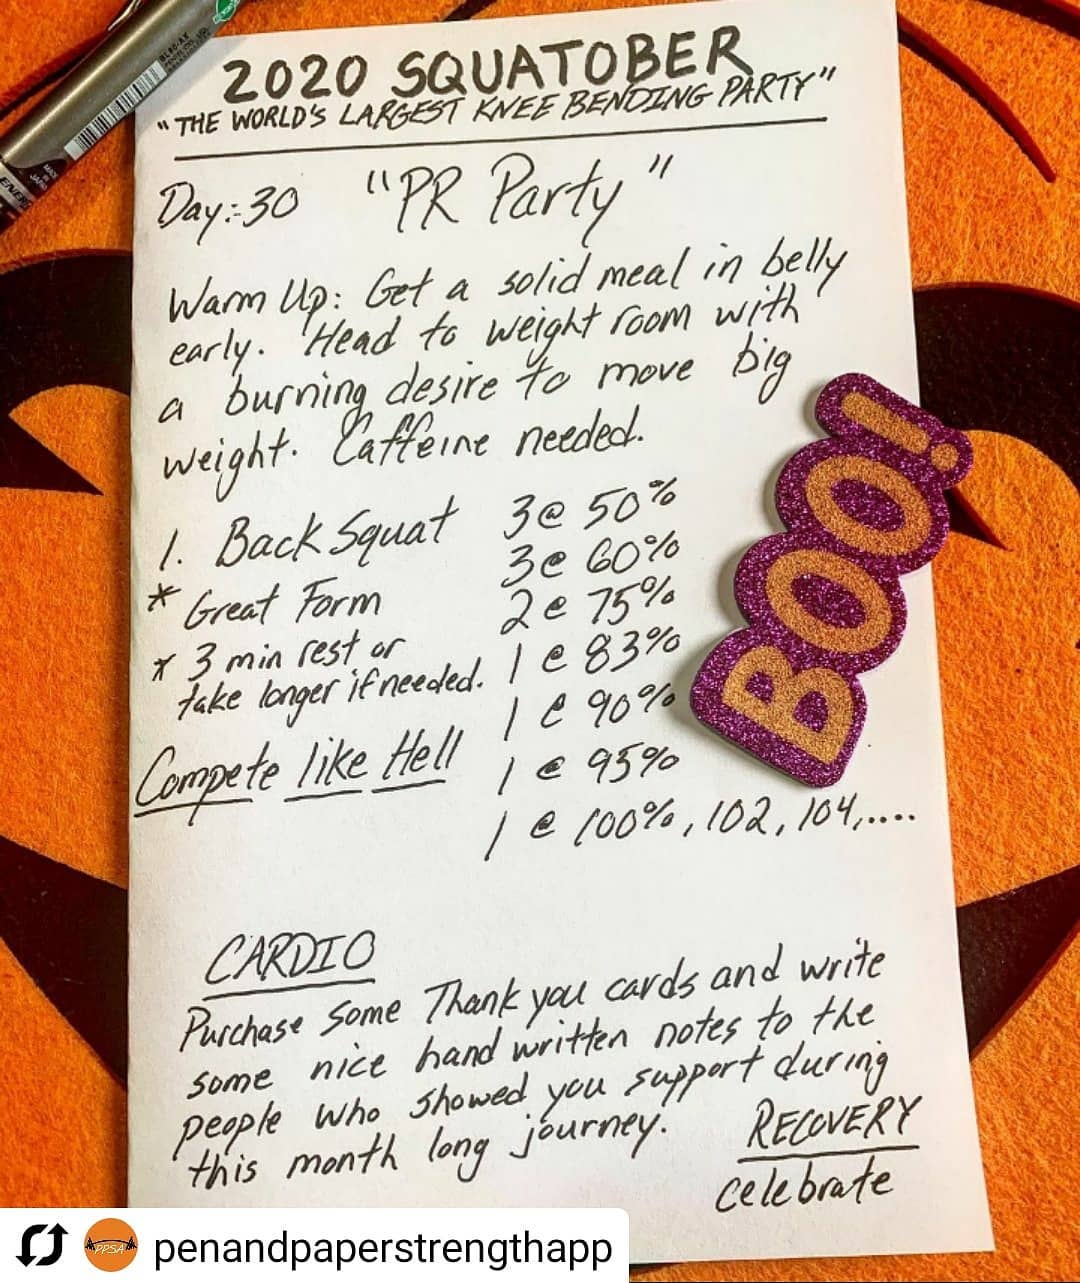 2020 SQUATOBER
"THE WORLD'S LARGEST KNEE BENDING PARTY"
Day:-30 "PR Party"
Warm Up: Get a solid meal in belly
early. Head to weight room with
a burning desire to move big
weight. Caffeine needed.
1. Back Squat 3@ 50%
3@ 60%
* Great Form 2@ 75%
* 3 min rest or
take longer if needed. 1 @ 83%
1 @ 90%
Compete like Hell 1 @ 95%
1 @ 100%, 102, 104,....
BOO!
CARDIO
Purchase some Thank you cards and write
some nice hand written notes to the
people who showed you support during
this month long journey.
RECOVERY
celebrate
PPSA
penandpaperstrengthapp